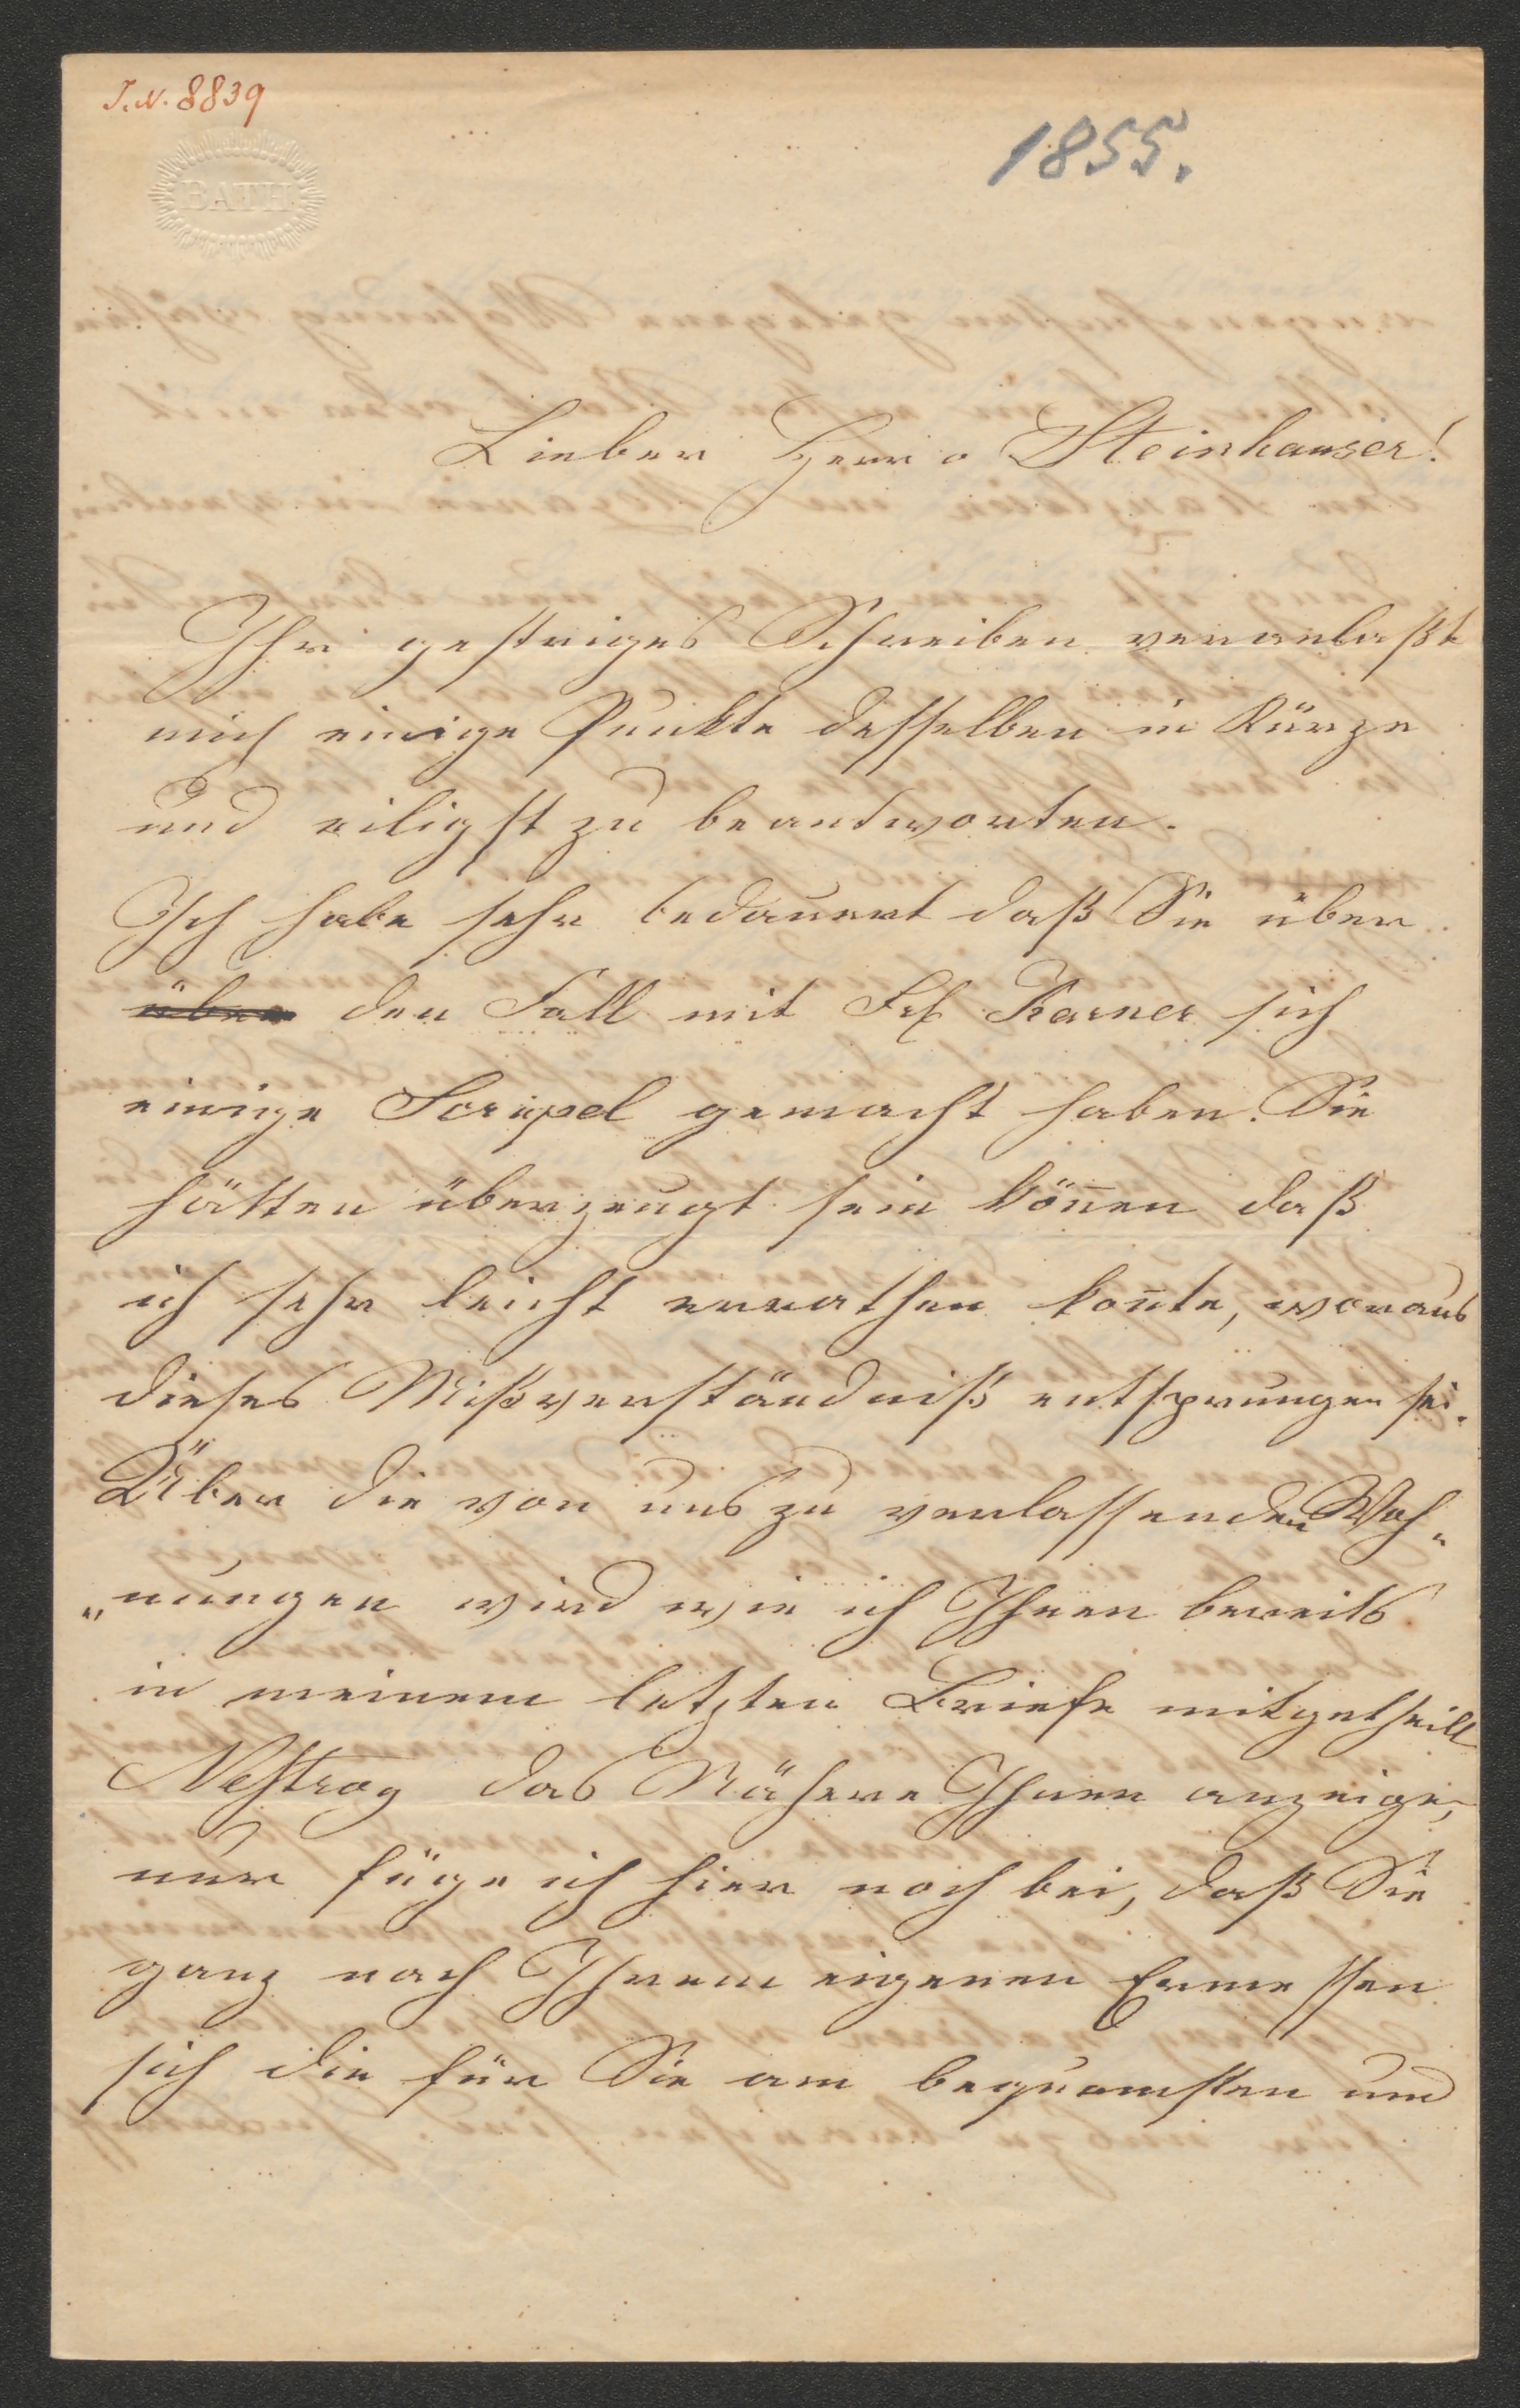 I.N. 8839
BATH
1855.
Lieber Herr v Steinhauser!
Ihr gestriges Schreiben veranlaßt
mich einige Punkte desselben in Kürze
und eiligst zu beantworten.
Ich habe sehr bedauert daß Sie über
über den Fall mit Frl Karner sich
einige Scrupel gemacht haben. Sie
hätten überzeugt sein kön̄en daß
ich sehr leicht errathen kon̄te, woraus
dieses Mißverständniß entsprungen sei.
Über die von uns zu verlassenden Woh„
„nungen wird wie ich Ihnen bereits
in meinem letzten Briefe mitgetheilt
Nestroy das Nähere Ihnen anzeigen,
nur füge ich hier noch bei, daß Sie
ganz nach Ihrem eigenen Ermessen
sich die für Sie am bequemsten und